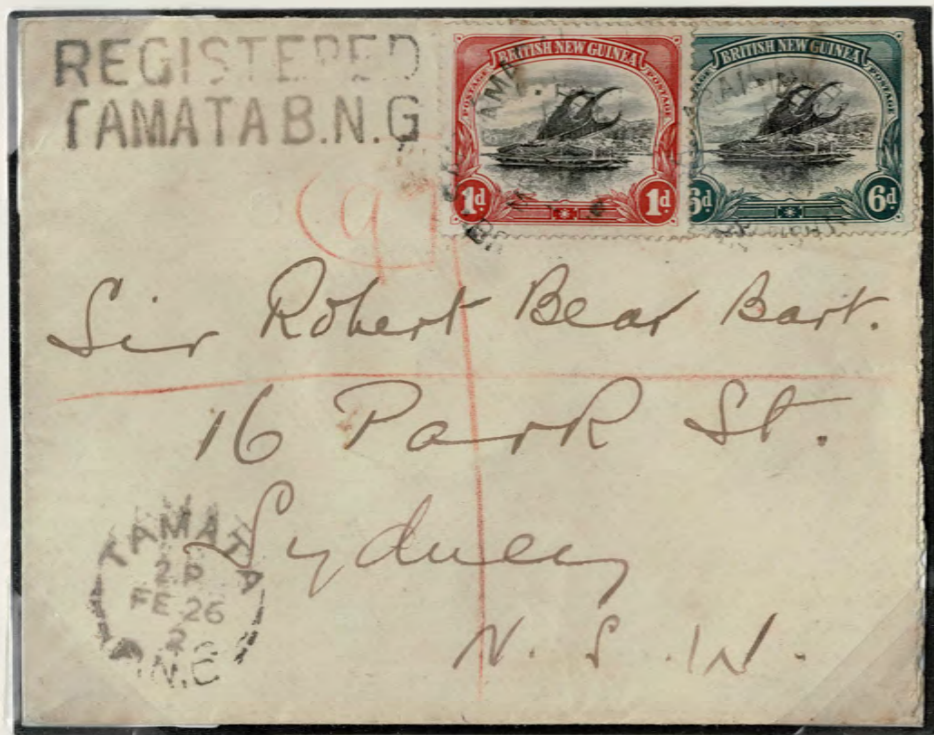 REGISTERED
TAMATA B.N.G
BRITISH NEW GUINEA
POSTAGE POSTAGE
1d 1d
BRITISH NEW GUINEA
POSTAGE POSTAGE
6d 6d
(97
Sir Robert Bear Bart.
16 Park St.
Sydney
N. S. W.
TAMATA
2 P
FE 26
2